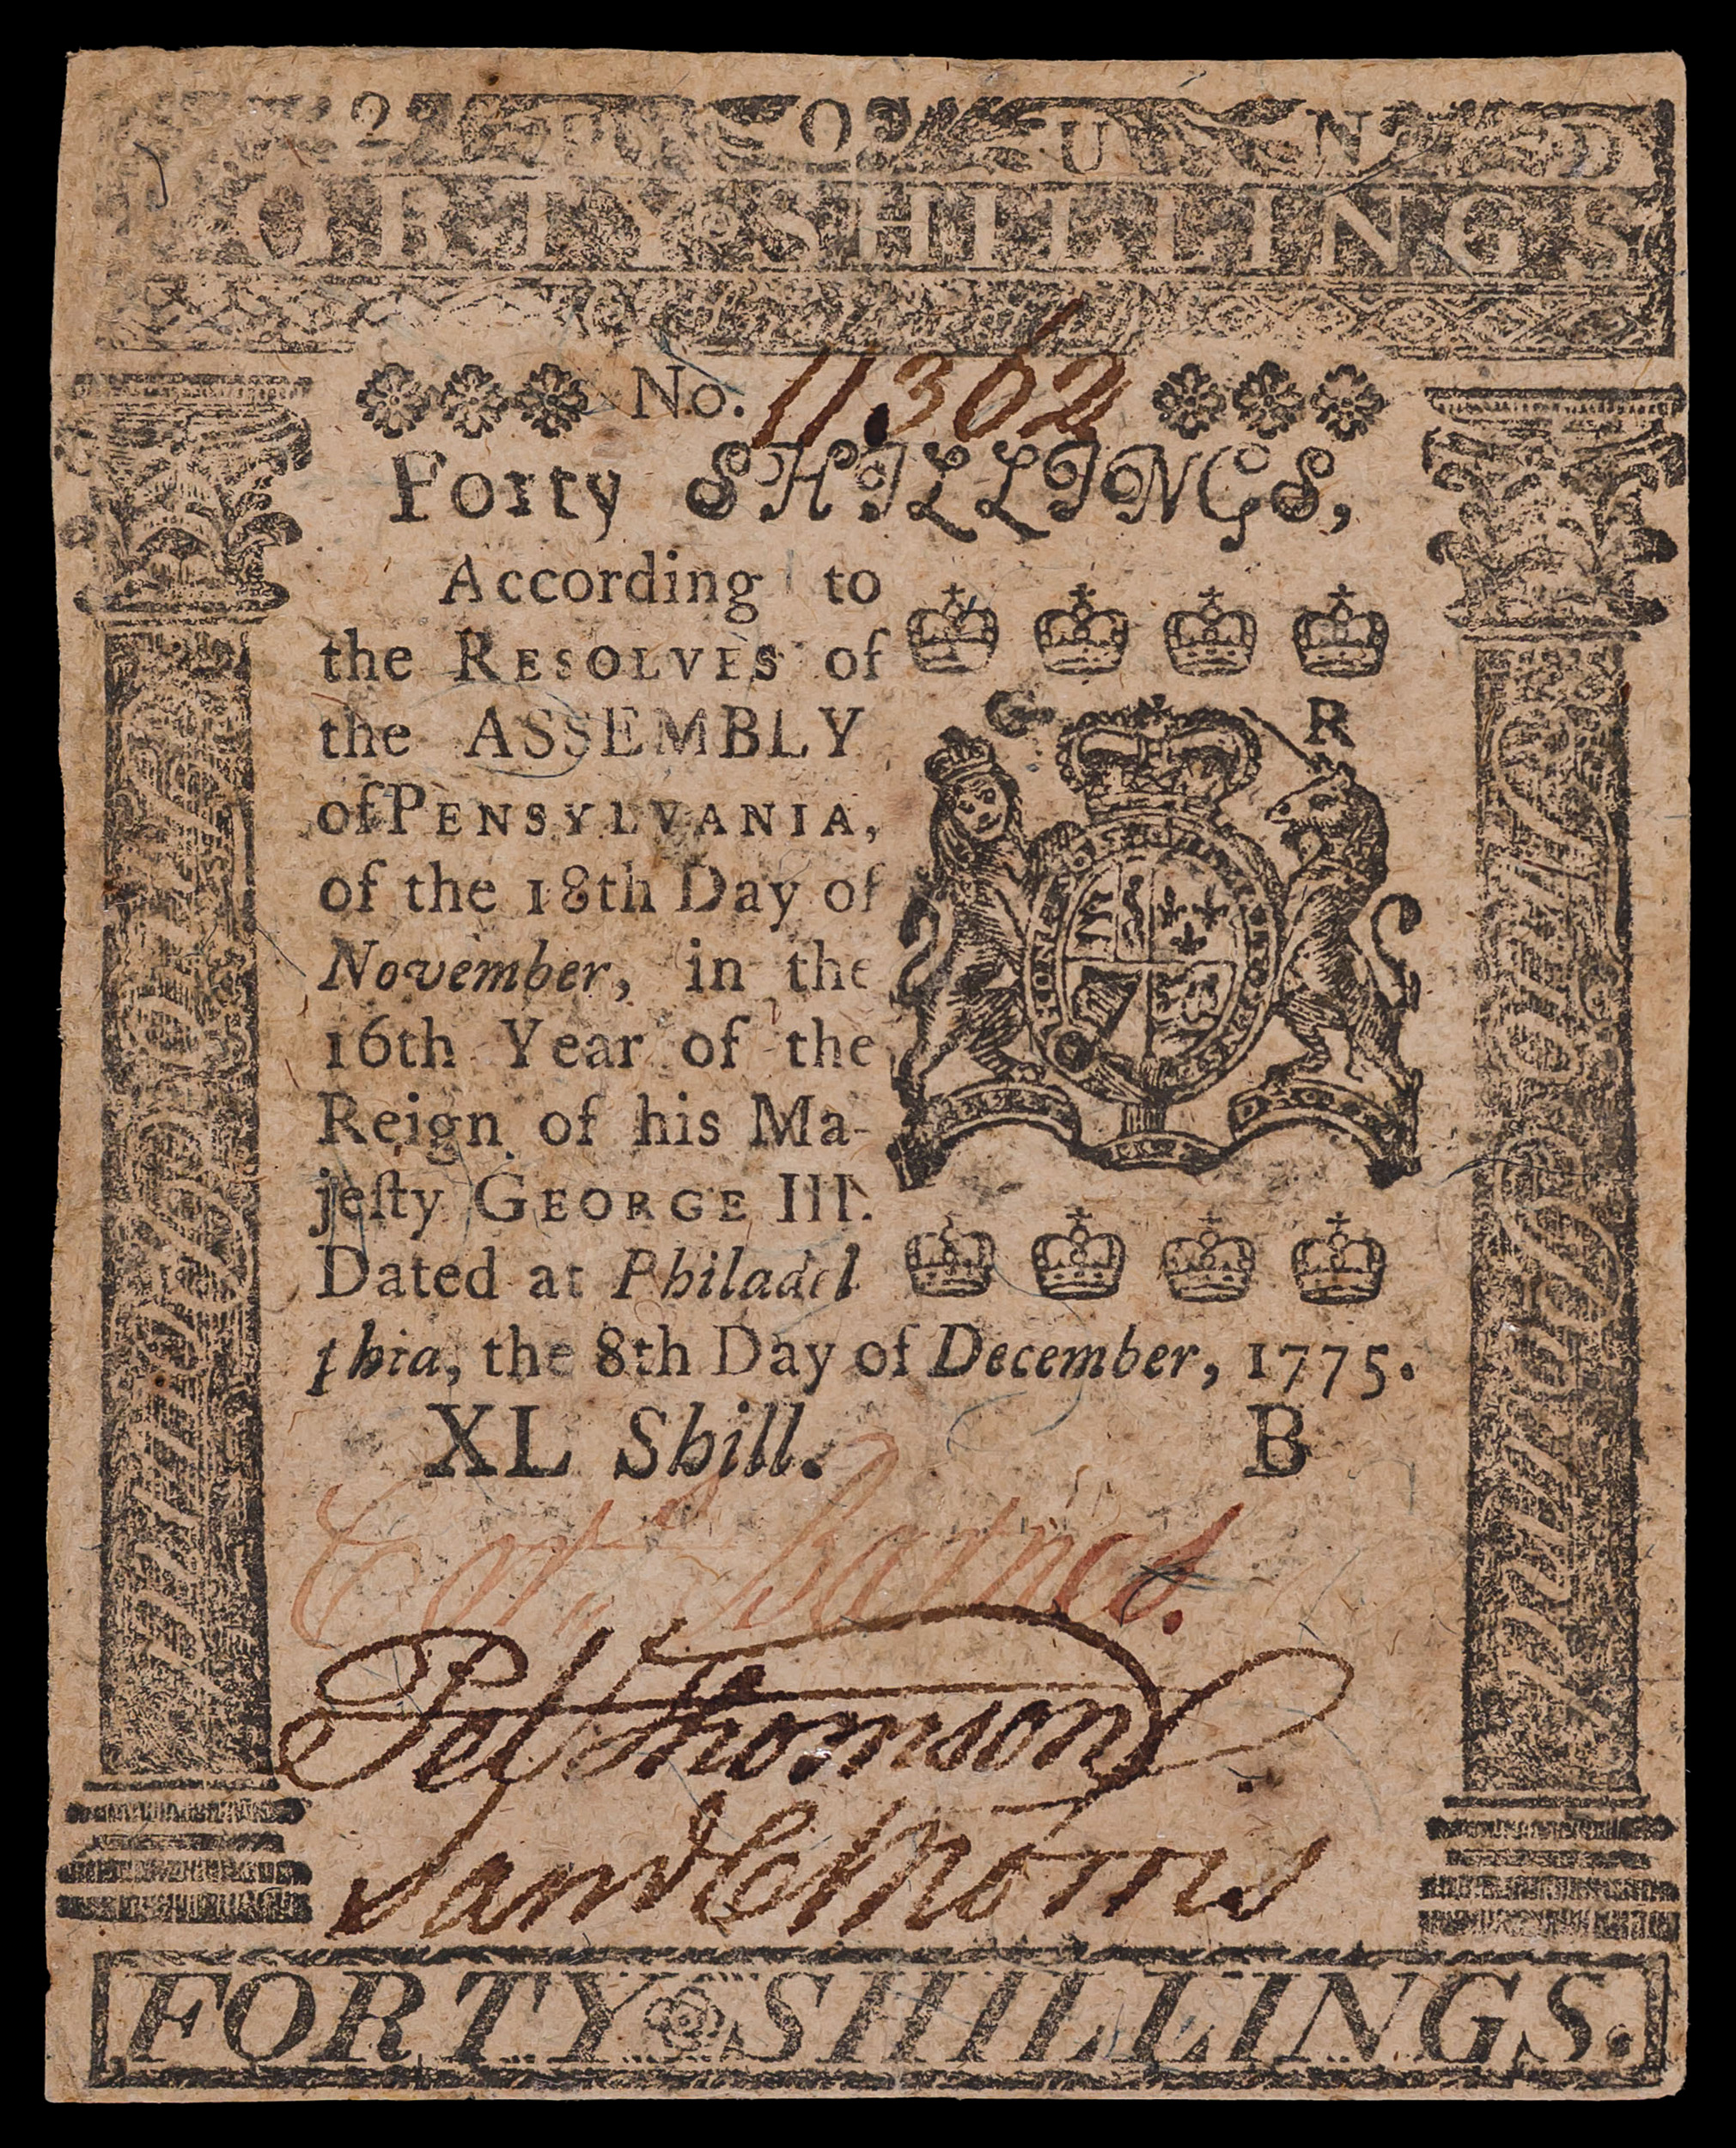 2 P O U N D
ORTY SHILLINGS
No. 11362
Forty SHILLINGS,
According to
the RESOLVES of
the ASSEMBLY
of PENSYLVANIA,
of the 18th Day of
November, in the
16th Year of the
Reign of his Ma-
jeſty GEORGE III.
Dated at Philadel
phia, the 8th Day of December, 1775.
G R
HONI SOIT
XL Shill. B
Corn Barnes.
Pet Thomson
Saml C Morris
FORTY SHILLINGS.